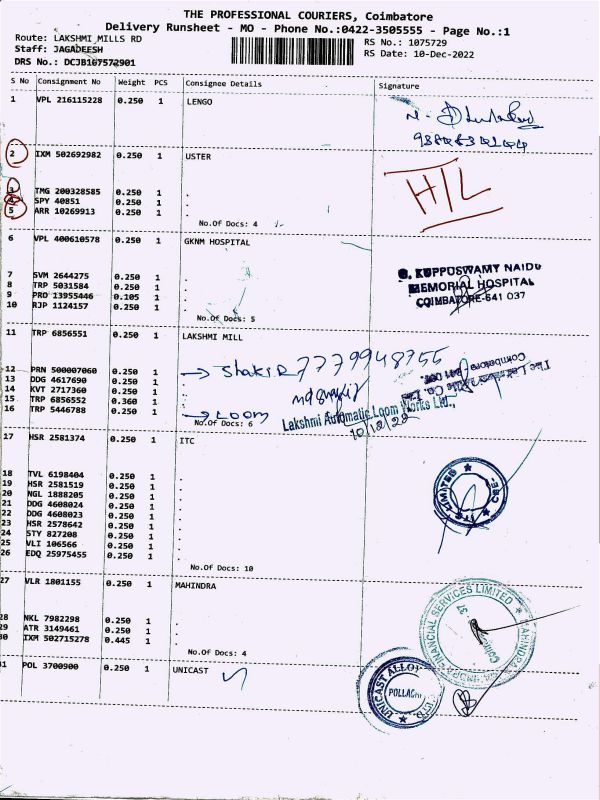 THE PROFESSIONAL COURIERS, Coimbatore
Delivery Runsheet - MO - Phone No.:0422-3505555 - Page No.:1
Route: LAKSHMI MILLS RD
Staff: JAGADEESH
DRS No.: DCJB167572901
RS No.: 1075729
RS Date: 10-Dec-2022
S No Consignment No Weight PCS Consignee Details Signature
1 VPL 216115228 0.250 1 LENGO
2 IXM 502692982 0.250 1 USTER
3 TMG 200328585 0.250 1 .
4 SPY 40851 0.250 1 .
5 ARR 10269913 0.250 1 .
No.Of Docs: 4
H/L
6 VPL 400610578 0.250 1 GKNM HOSPITAL
7 SVM 2644275 0.250 1 .
8 TRP 5031584 0.250 1 .
9 PRO 13955446 0.105 1 .
10 RJP 1124157 0.250 1 .
No.Of Docs: 5
G. KUPPUSWAMY NAIDU
MEMORIAL HOSPITAL
COIMBATORE-641 037
11 TRP 6856551 0.250 1 LAKSHMI MILL
12 PRN 500007060 0.250 1 → Shakir 7779948755
13 DDG 4617690 0.250 1 .
14 KVT 2717360 0.250 1 .
15 TRP 6856552 0.360 1 .
16 TRP 5446788 0.250 1 → Loom
No.Of Docs: 6
Lakshmi Automatic Loom Works Ltd.,
10/12/22
17 HSR 2581374 0.250 1 ITC
18 TVL 6198404 0.250 1 .
19 HSR 2581519 0.250 1 .
20 NGL 1888205 0.250 1 .
21 DDG 4608024 0.250 1 .
22 DDG 4608023 0.250 1 .
23 HSR 2578642 0.250 1 .
24 STY 827208 0.250 1 .
25 VLI 106566 0.250 1 .
26 EDQ 25975455 0.250 1 .
No.Of Docs: 10
ITC LIMITED ★ CBE-
27 VLR 1801155 0.250 1 MAHINDRA
28 NKL 7982298 0.250 1 .
29 ATR 3149461 0.250 1 .
30 IXM 502715278 0.445 1 .
No.Of Docs: 4
MAHINDRA FINANCIAL SERVICES LIMITED
31 POL 3700900 0.250 1 UNICAST
UNICAST ALLOY LTD.
POLLACHI